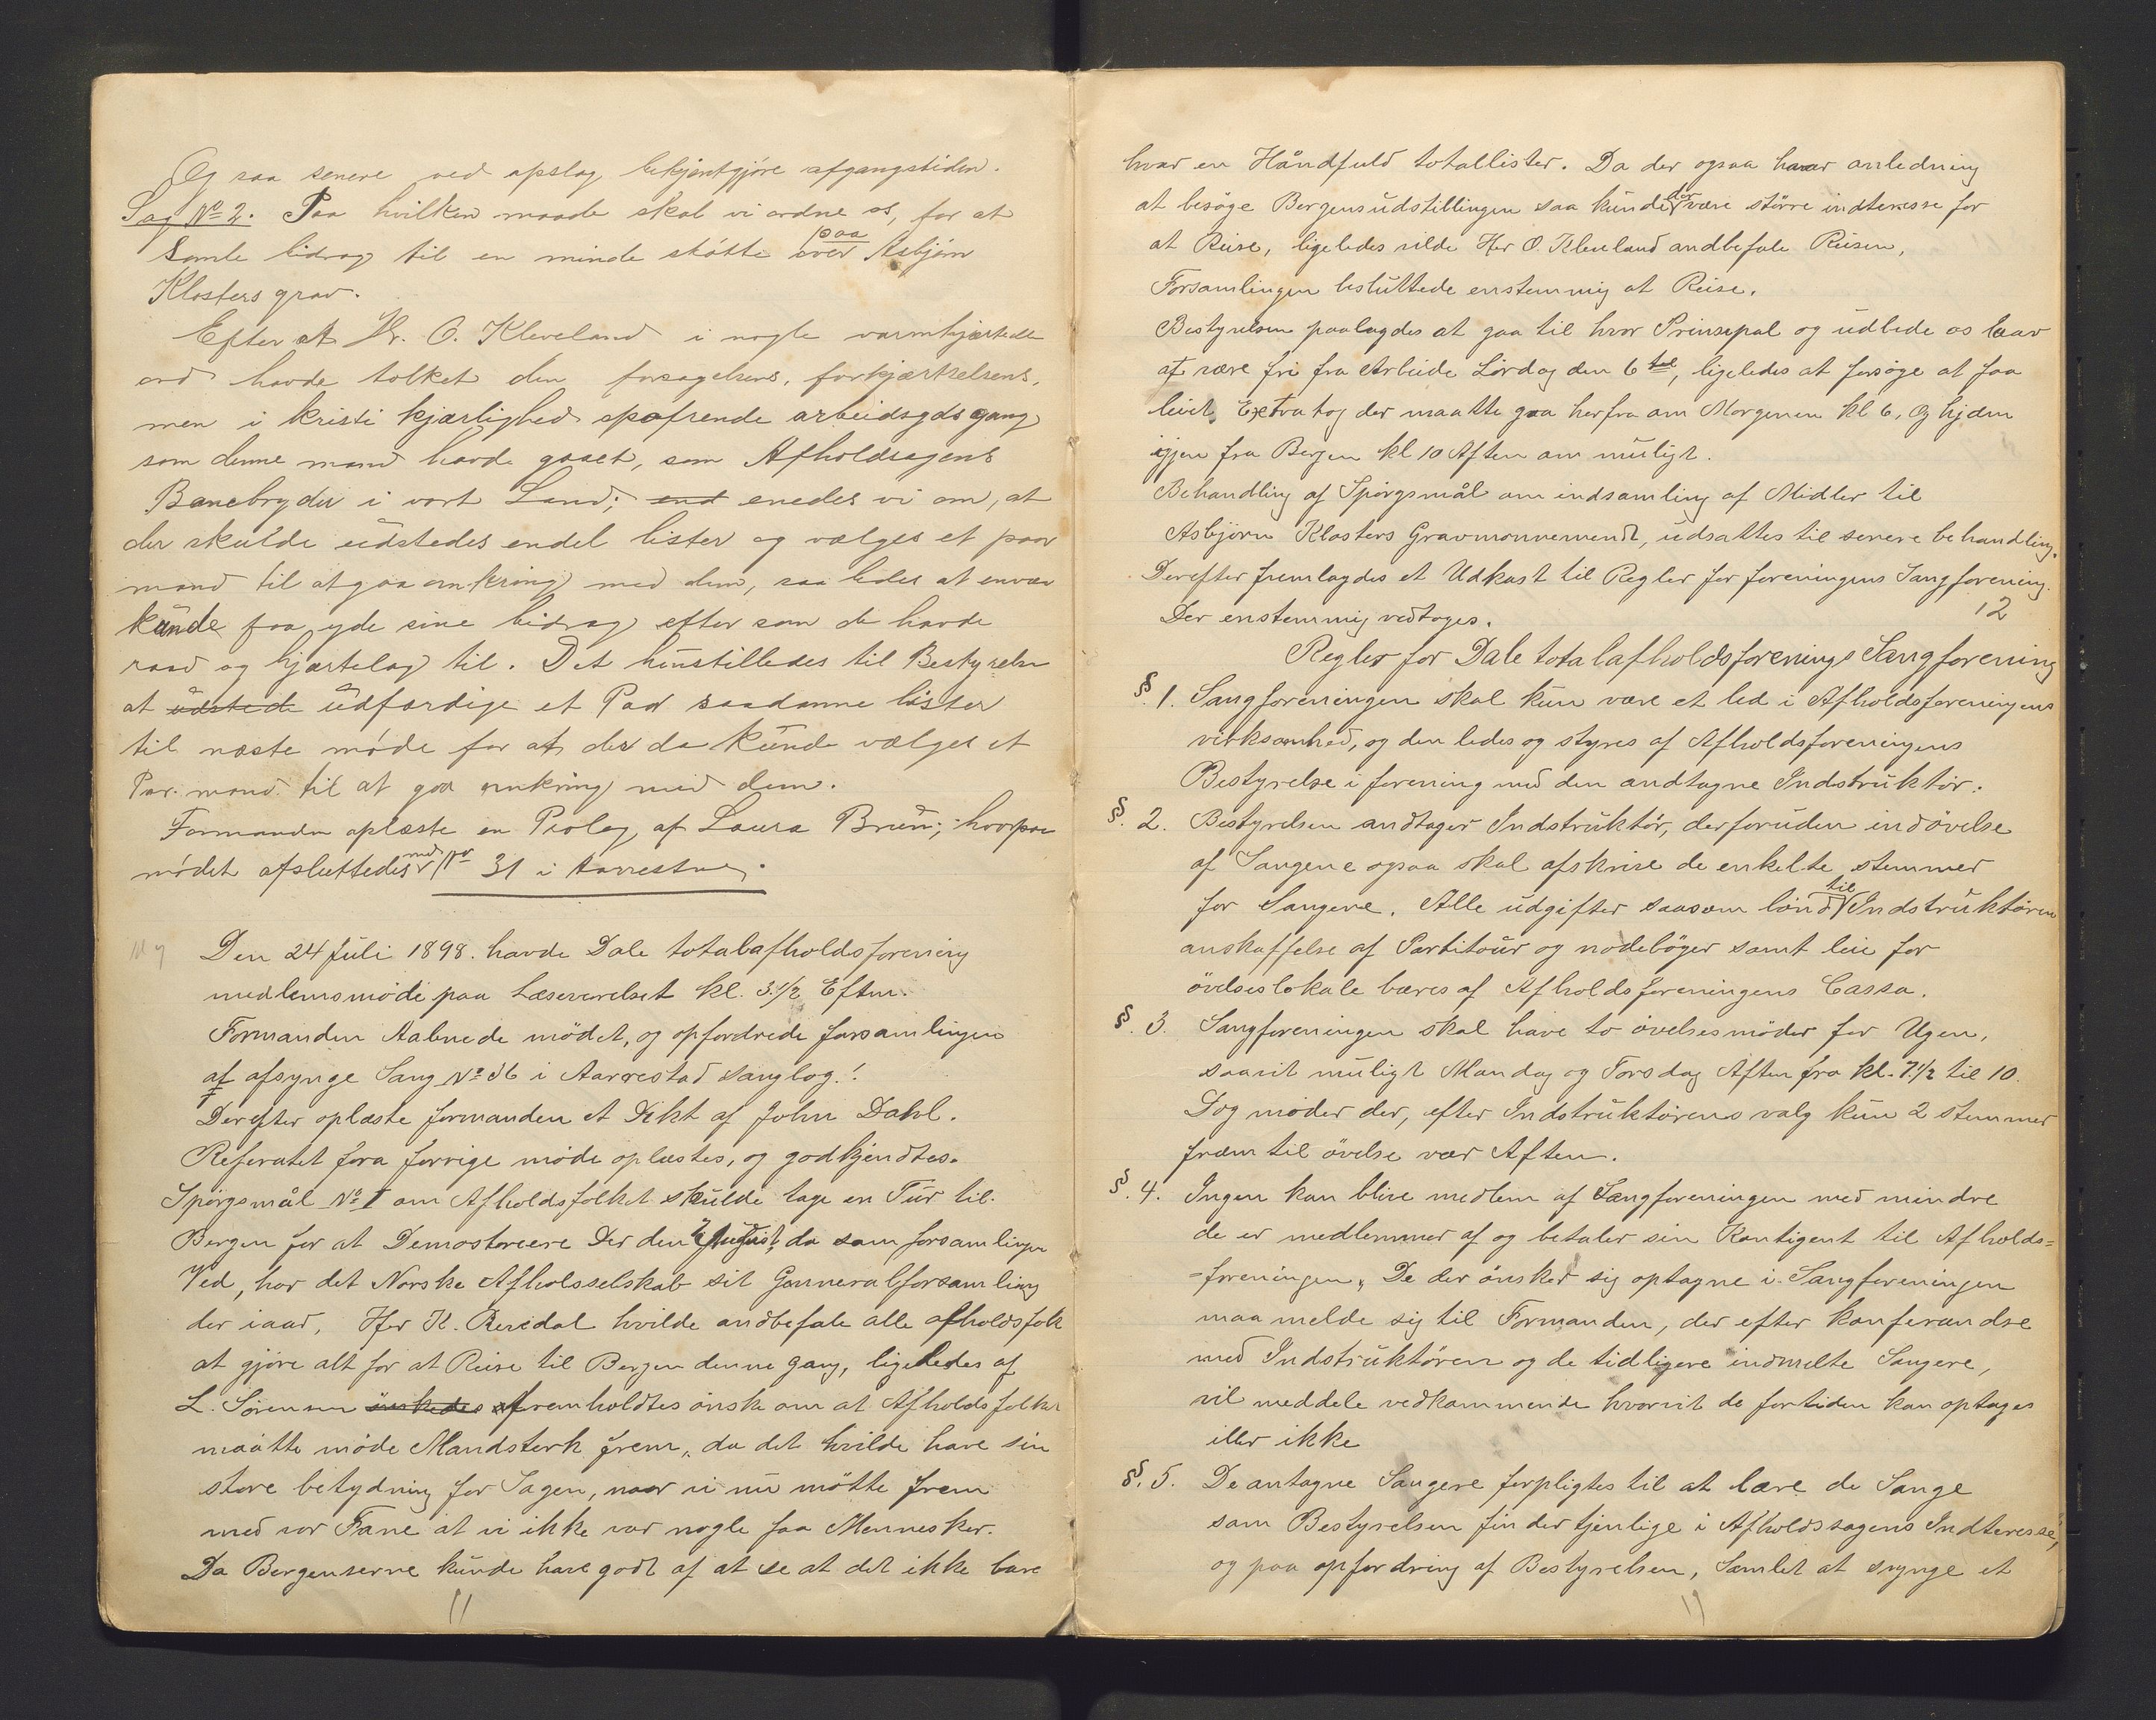 Og saa senere ved opslag bekjentgjöre afgangstiden.
Sag No 2. Paa hvilken maade skal vi ordne os, for at
Samle bidrag til en minde stötte over paa Asbjörn
Klosters grav.
Efter at Hr. O. Kleveland i nogle varmhjertede
ord havde tolket den forsagelsens, forkjærkelsens,
men i kristi kjærlighed opofrende arbeidsgds gang
som denne mand havde gaaet, som Afholdsagens
Banebryder i vort Land; end enedes vi om, at
der skulde udstedes endel lister og vælges et paar
mand til at gaa omkring med dem, saa ledes at enver
kunde faa yde sine bidrag efter som de havde
raad og hjærtelag til. Det henstilledes til Bestyrelsen
at udstede udfærdige et Par saadanne lister
til næste möde for at der da kunde vælges et
Par mand til at gaa omkring med dem.
Formanden oplæste en Prolog af Laura Bruun; hvorpaa
mödet afsluttedes med Nr 31 i Aarrestad.
Den 24 Juli 1898. havde Dale totalafholdsforening
medlemsmöde paa Læseverelset kl. 3.1/2 Eftm.
Formanden Aabnede mödet, og opfordrede forsamlingen
af afsynge Sang No 36 i Aarrestad sangbog.!
Derefter oplæste formanden et Dikt af John Dahl.
Referatet fora forrige möde oplæstes, og godkjendtes.
Spörgsmål No I om Afholdsfolket skulde tage en Tur til
Bergen for at Demostorere Der den August, da som forsamlingen
Ved, har det Norske Afholsselskab sit Gonneralforsamling
der iaar, Her K. Reisdal hvilde andbefale alle afholdsfolk
at gjöre alt for at Reise til Bergen denne gang, ligeledes af
L. Sörensen önskedes af fremholdtes önske om at Afholdsfolket
maatte möde Mandsterk frem, da det hvilde have sin
store betydning for Sagen, naar vi nu mötte frem
med vor Fane at vi ikke var nogle faa Mennesker.
Da Bergenserne kunde have godt af at se at det ikke bare
11
hvar en Håndfuld totallister. Da der ogsaa havar anledning
at besöge Bergensudstillingen saa kunde der være större indteresse for
at Reise, ligeledes vilde Her O. Kleveland andbefale Reisen,
Forsamlingen besluttede enstemmig at Reise.
Bestyrelsen paalagdes at gaa til hvor Prinsepal og udbede os Laav
at være fri fra Arbeide Lördag den 6te, ligeledes at forsöge at faa
leiet Extratog der maatte gaa herfra om Morgenen kl 6, Og hjem
igjen fra Bergen kl 10 Aften om muligt.
Behandling af Spörgsmål om indsamling af Midler til
Asbjörn Klosters Gravmonnement, udsattes til senere behandling.
Derefter fremlagdes et Udkast til Regler for foreningens Sangforening.
Der enstemmig vedtoges.
12
Regler for Dale totalafholdsforenings Sangforening
§. 1. Sangforeningen skal kun være et led i Afholdsforeningens
virksomhed, og den ledes og styres af Afholdsforeningens
Bestyrelse i forening med den andtagne Indstruktör.
§. 2. Bestyrelsen andtager Indstruktör, der foruden indövelse
af Sangene ogsaa skal afskrive de enkelte stemmer
for Sangene. Alle udgifter saasom lönd til Indstruktören
anskaffelse af Partitour og nodeböger samt leie for
övelseslokale bæres af Afholdsforeningens Cassa.
§. 3. Sangforeningen skal have to övelsesmöder for Ugen,
saavit muligt Mandag og Torsdag Aften fra kl. 7 1/2 til 10.
Dog möder der, efter Indstruktörens valg kun 2 stemmer
fræm til övelse vær Aften.
§. 4. Ingen kan blive medlem af Sangforeningen med mindre
de er medlemmer af og betaler sin Kontigent til Afholds=
=foreningen, De der önsker sig optagne i Sangforeningen
maa melde sig til Formanden, der efter konferandse
med Indstruktören og de tidligere indmelte Sangere,
vil meddele vedkommende hvorvit de fortiden kan optages
eller ikke
§. 5. De antagne Sangere forpligtes til at lære de Sange
som Bestyrelsen finder tjenlige i Afholdssagens Indteresse,
og paa opfordring af Bestyrelsen, Samlet at synge et
11